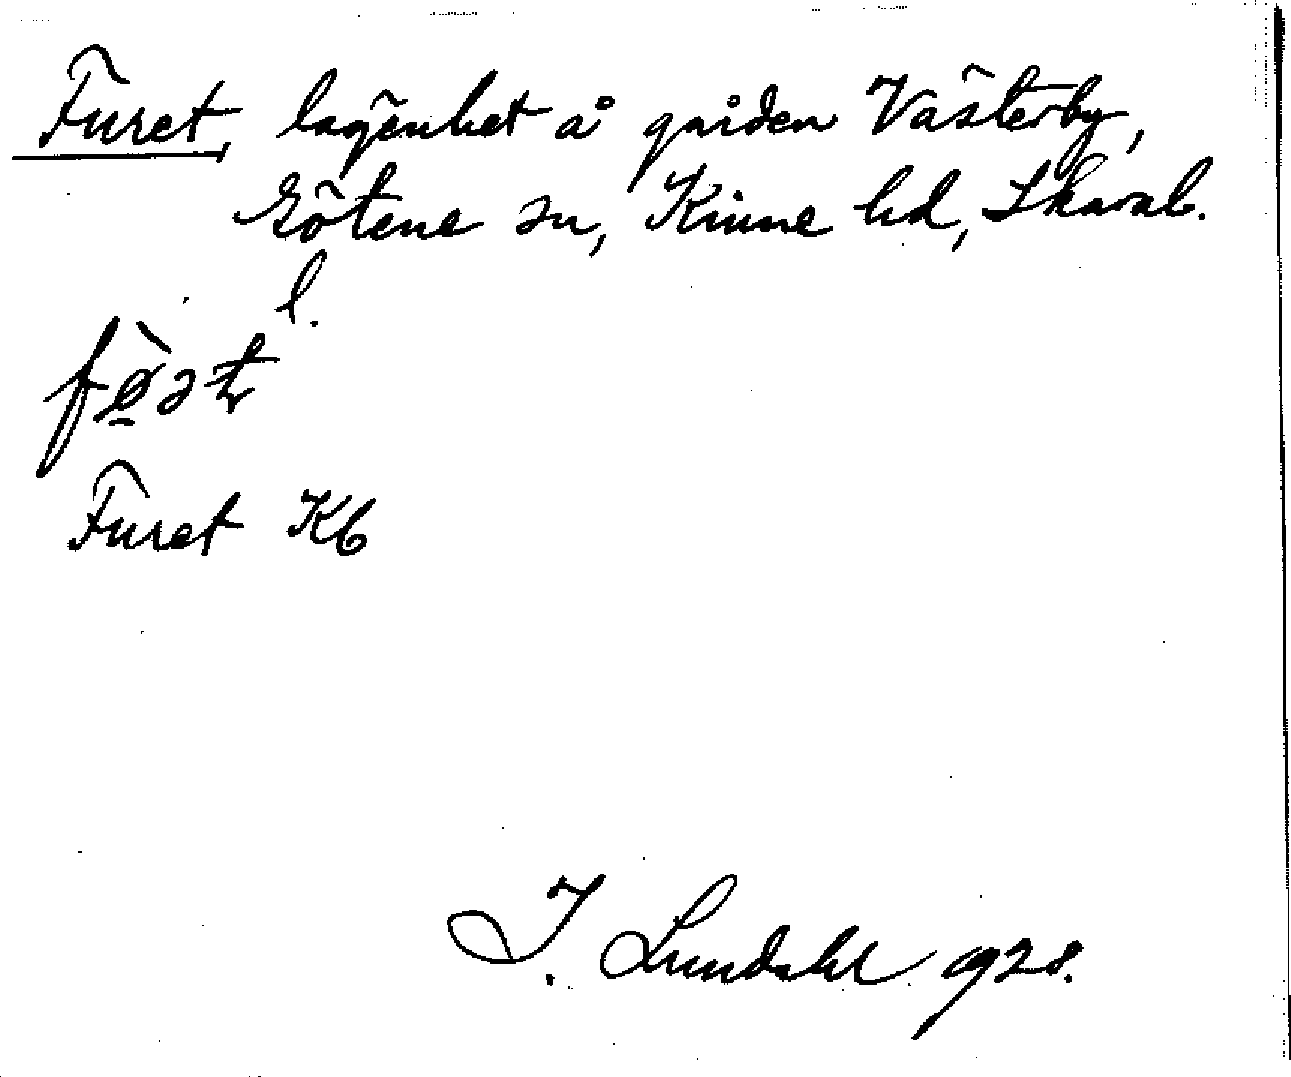 Furet, lägenhet å gården Västerby,
Götene sn, Kinne hd, Skarab.
l.
fø̱̀ət
Furet Kb
I. Lundahl 1928.